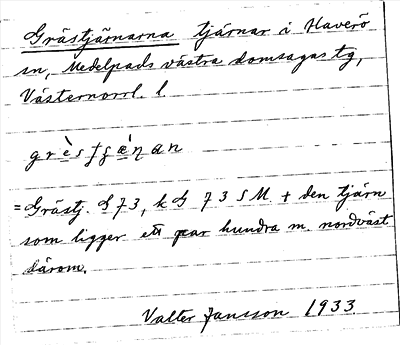 Gråstjärnarna tjärnar i Haverö
sn, Medelpads västra domsagas tg,
Västernorrl. l.
= Gråstj. G 73, k G 73 S M. + den tjärn
som ligger ett par hundra m. nordväst
därom.
Valter Jansson 1933